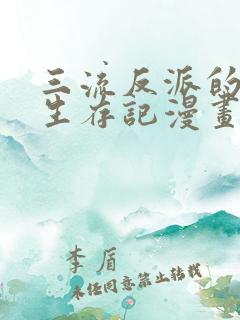 三流反派的
生存記漫畫
李盾
未经同意禁止转载